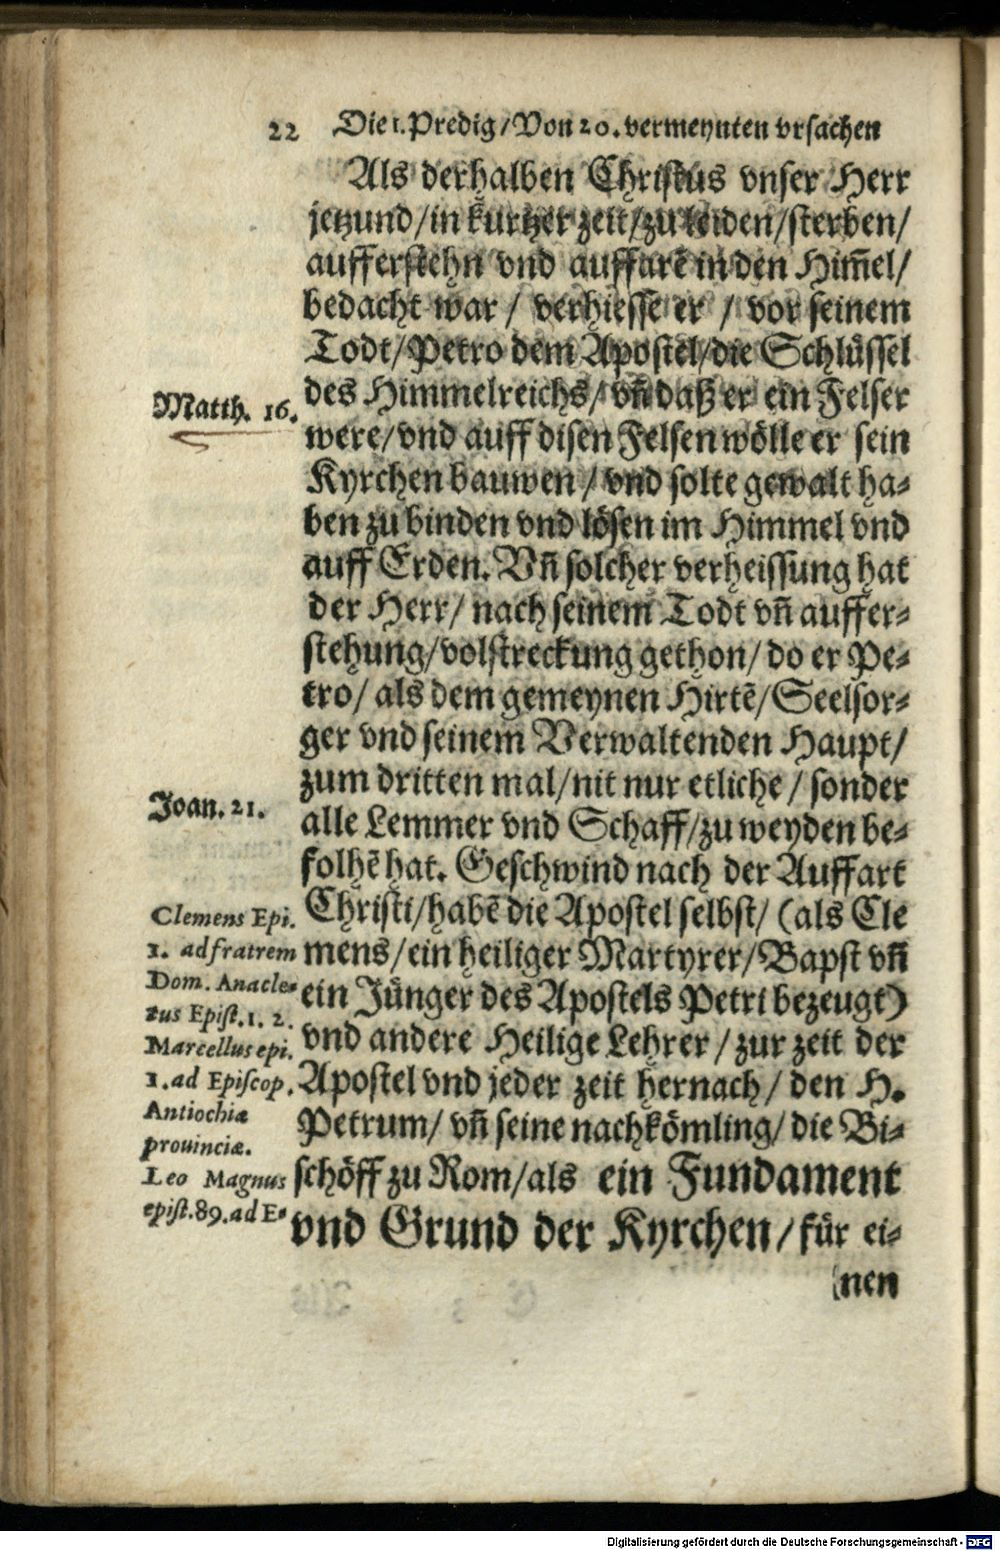 22 Die 1. Predig/Von 20. vermeynten vrsachen
Als derhalben Christus vnser Herr
jetzund/in kurtzer zeit/zu leiden/sterben/
aufferstehn vnd auffarẽ in den Him̃el/
bedacht war / verhiessẽ er / vor seinem
Todt/Petro dem Apostel/die Schlüssel
des Himmelreichs/vñ daß er ein Felser
were/vnd auff disen Felsen wölle er sein
Kyrchen bauwen / vnd solte gewalt ha-
ben zu binden vnd lösen im Himmel vnd
auff Erden. Vñ solcher verheissung hat
der Herr/ nach seinem Todt vñ auffer-
stehung/volstreckung gethon/ do er Pe-
tro/ als dem gemeynen Hirtẽ/Seelsor-
ger vnd seinem Verwaltenden Haupt/
zum dritten mal/nit nur etliche / sonder
alle Lemmer vnd Schaff/zu weyden be-
folhẽ hat. Geschwind nach der Auffart
Christi/habẽ die Apostel selbst/ (als Cle
mens/ein heiliger Martyrer/Bapst vñ
ein Jünger des Apostels Petri bezeugt)
vnd andere Heilige Lehrer / zur zeit der
Apostel vnd jeder zeit hernach/ den H.
Petrum/ vñ seine nachkömling/ die Bi-
schöff zu Rom/als ein Fundament
vnd Grund der Kyrchen/für ei-
nen
Matth. 16.
Joan. 21.
Clemens Epi.
1. ad fratrem
Dom. Anacle-
tus Epist. 1. 2.
Marcellus epi.
1. ad Episcop.
Antiochiæ
prouinciæ.
Leo Magnus
epist. 89. ad E-
Digitalisierung gefördert durch die Deutsche Forschungsgemeinschaft - DFG